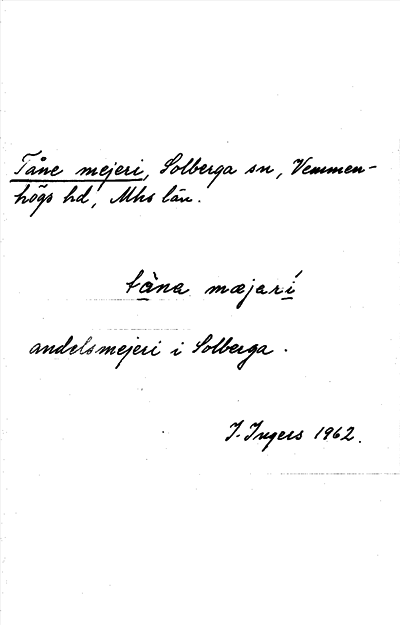 Tåne mejeri, Solberga sn, Vemmen-
högs hd, Mhs län.
tåna mæjarí
andelsmejeri i Solberga.
I. Ingers 1962.